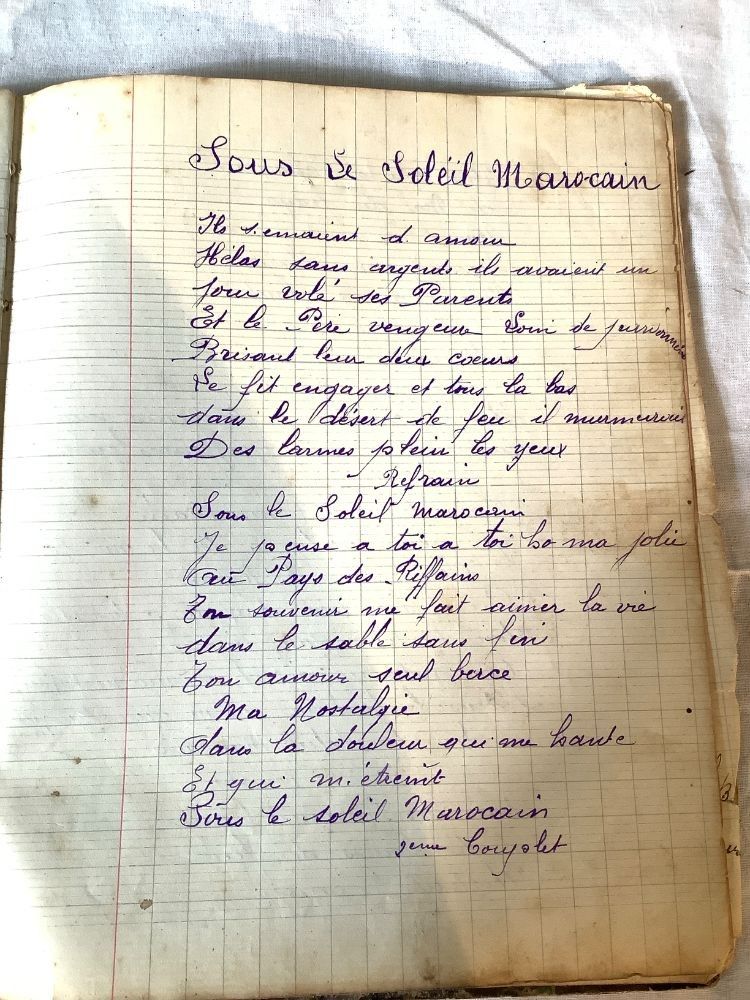 Sous Le Soleil Marocain
Ils s.emaient d. amour
Hélas sans argents ils avaient un
jour volé ses Parents
Et le Père vengeur Loin de
Brisant leur deux coeurs
Se fit engager et tous la bas
dans le désert de feu il murmurait
Des larmes plein les yeux
Refrain
Sous le Soleil marocain
Je pense a toi a toi ho ma jolie
au Pays des Riffains
Ton souvenir me fait aimer la vie
dans le sable sans fin
Ton amour seul berce
Ma Nostalgie
dans la douleur qui me hante
Et qui m.étreint
Sous le soleil Marocain
2eme Couplet